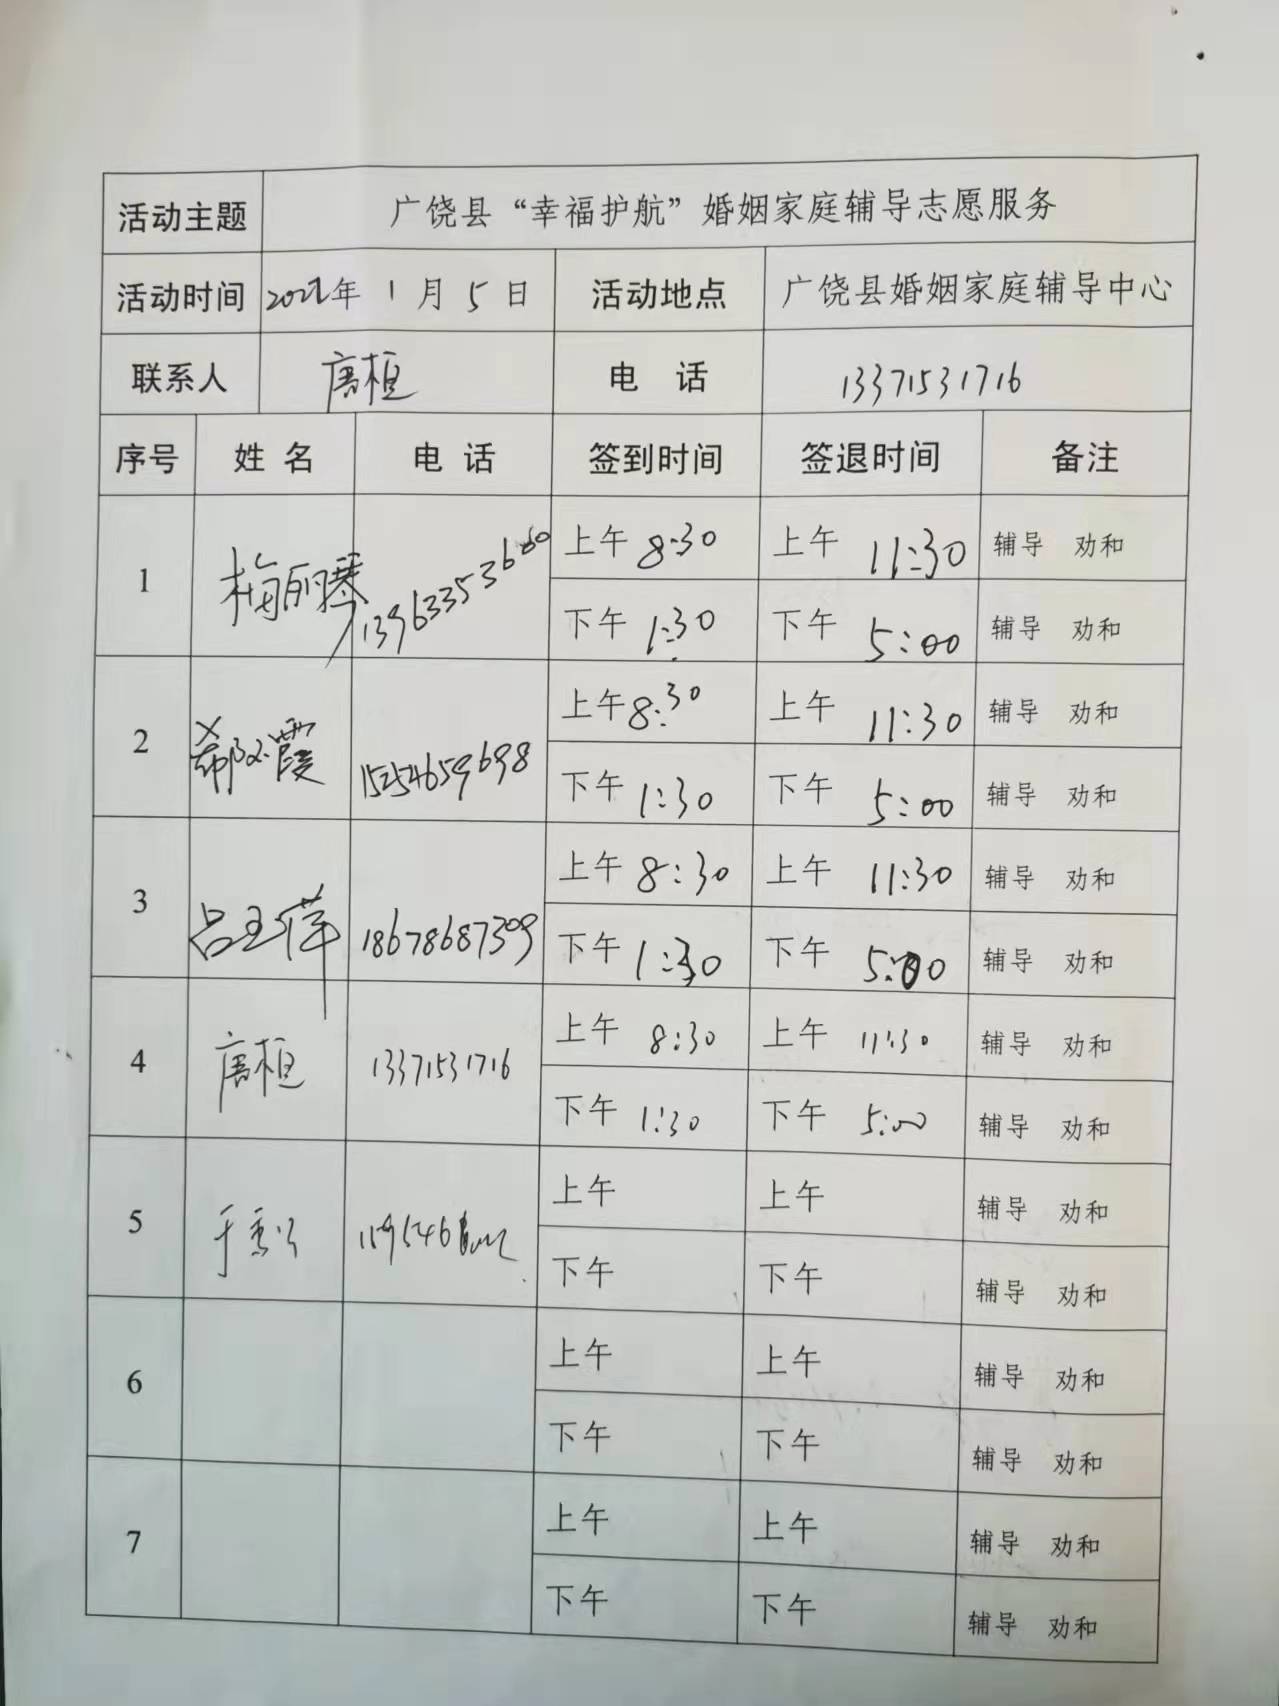 活动主题 广饶县“幸福护航”婚姻家庭辅导志愿服务
活动时间 2022年 1月 5日 活动地点 广饶县婚姻家庭辅导中心
联系人 唐桓 电 话 13371531716
序号 姓名 电话 签到时间 签退时间 备注
上午 8:30 上午 11:30 辅导 劝和
1 梅丽琴
下午 1:30 下午 5:00 辅导 劝和
上午 8:30 上午 11:30 辅导 劝和
2 15254659698
下午 1:30 下午 5:00 辅导 劝和
上午 8:30 上午 11:30 辅导 劝和
3 吕玉萍 18678687309
下午 1:30 下午 5:00 辅导 劝和
上午 8:30 上午 11:30 辅导 劝和
4 唐桓 13371531716
下午 1:30 下午 5:00 辅导 劝和
上午 上午 辅导 劝和
5
下午 下午 辅导 劝和
上午 上午 辅导 劝和
6
下午 下午 辅导 劝和
上午 上午 辅导 劝和
7
下午 下午 辅导 劝和